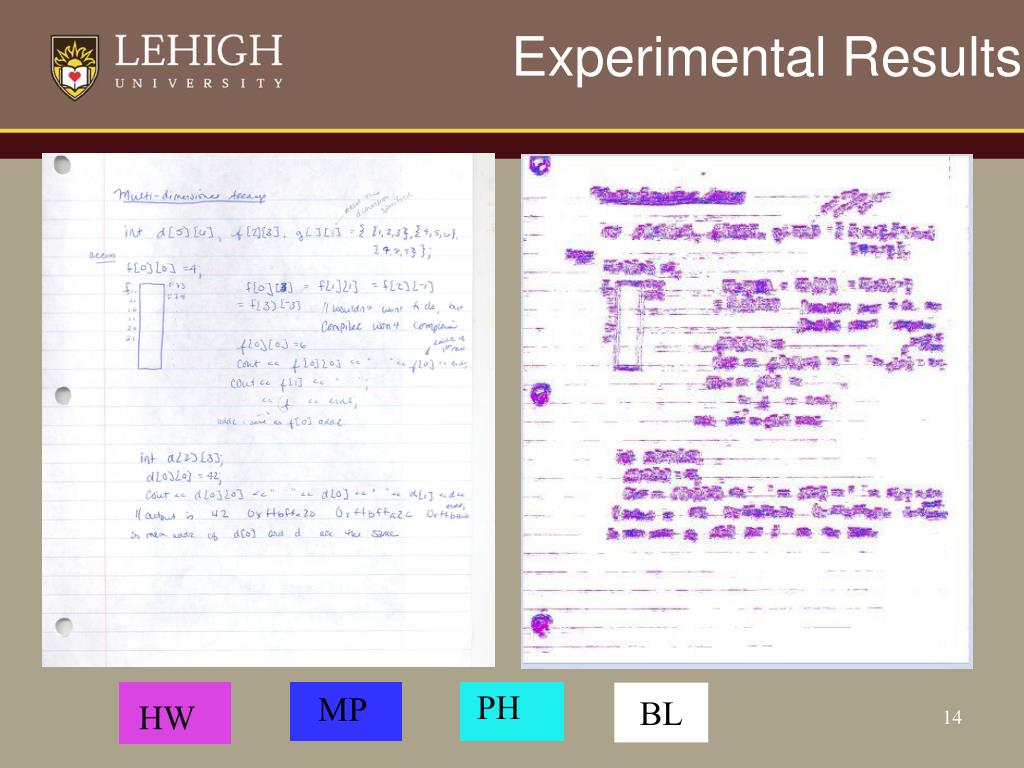 LEHIGH
UNIVERSITY
Experimental Results
Multi-dimensional Arrays
need the
dimension
specified
int d[5][4], f[2][3], g[][3] = { {1,2,3}, {4,5,6},
access
f[0][0] = 4;
f
= f[1][1] = f[2][-1]
= f[3][-3] // wouldn't want to do, but
Compiler won't complain
f[0][0] = 6
Cout << f[0][0] << " " << f[0] <<
Cout << f[1] << " ";
<< f << endl;
same as f[0] addr
int d[2][3];
d[0][0] = 42;
Cout << d[0][0] << " " << d[0] << " " << d[1] <<
// output is 42
So mem addr of d[0] and d are the same
HW
MP
PH
BL
14